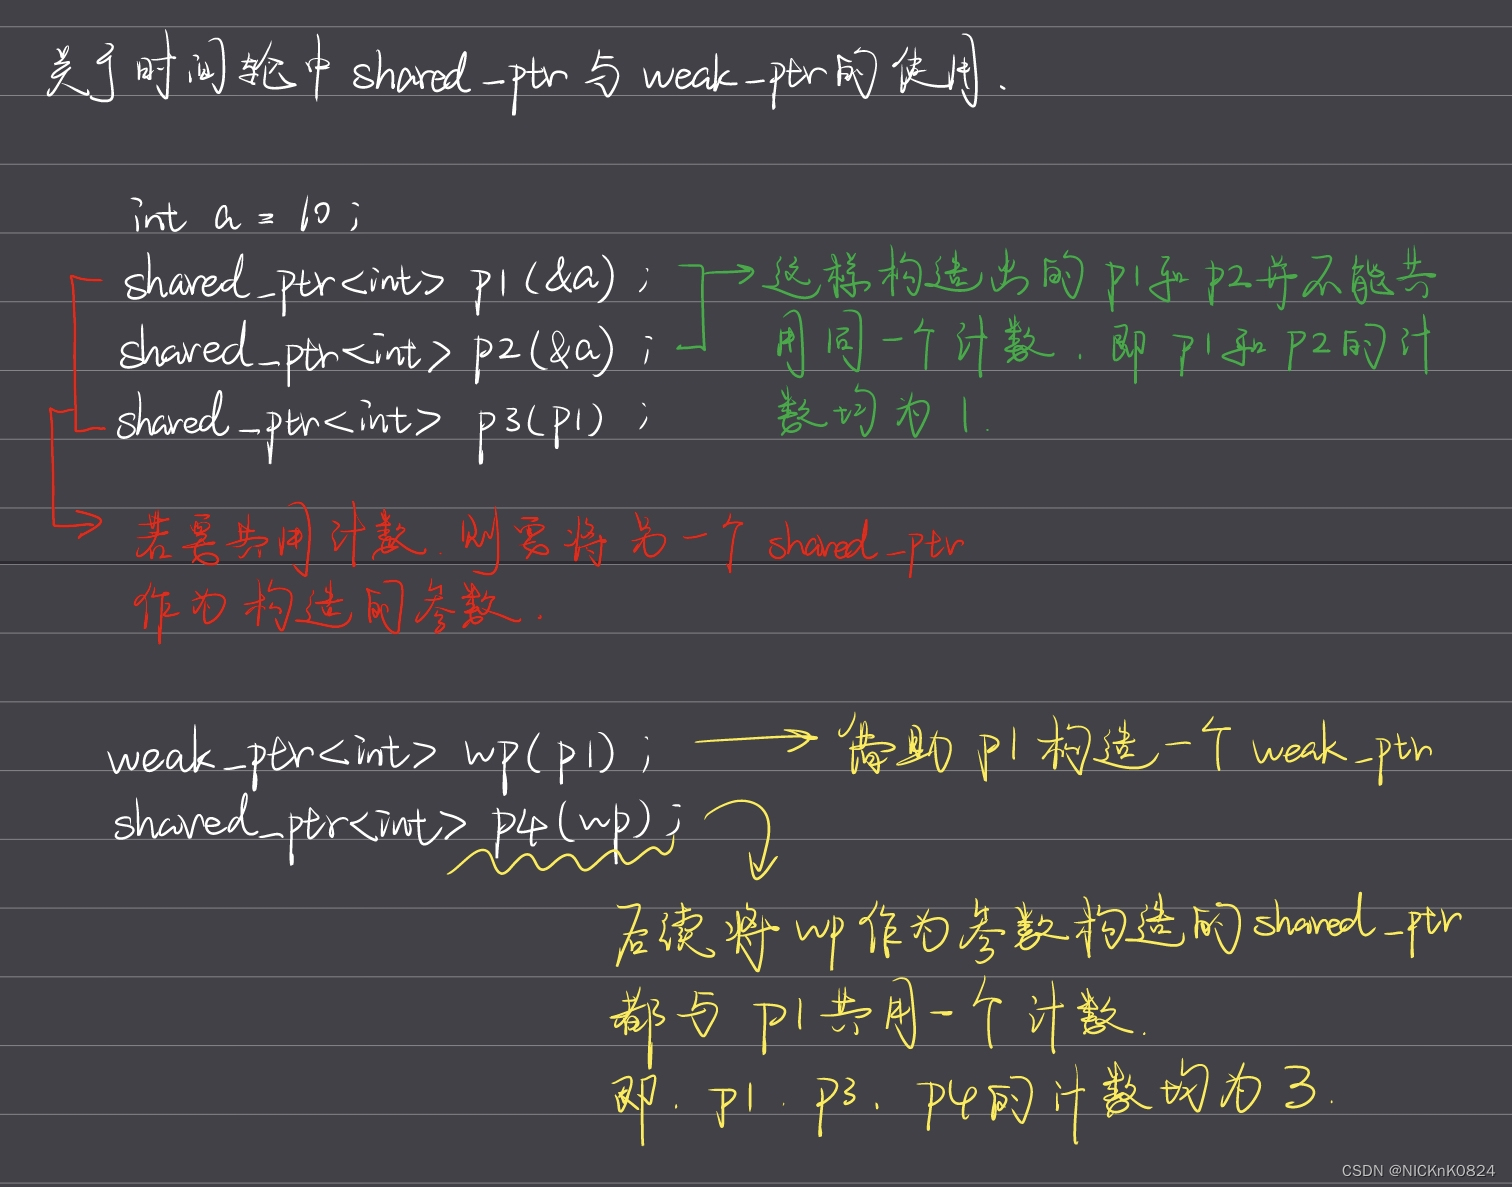 关于时间轮中 shared_ptr 与 weak_ptr 的使用.
int a = 10 ;
shared_ptr<int> p1(&a) ;
shared_ptr<int> p2(&a) ;
shared_ptr<int> p3(p1) ;
这样构造出的 p1和 p2并不能共
用同一个计数. 即 p1和 p2的计
数均为 1.
若要共用计数. 则要将另一个 shared_ptr
作为构造的参数.
weak_ptr<int> wp(p1) ;
借助 p1 构造一个 weak_ptr
shared_ptr<int> p4(wp);
后续将 wp作为参数构造的shared_ptr
都与 p1共用一个计数.
即. p1. p3. p4的计数均为3.
CSDN @NICKnK0824